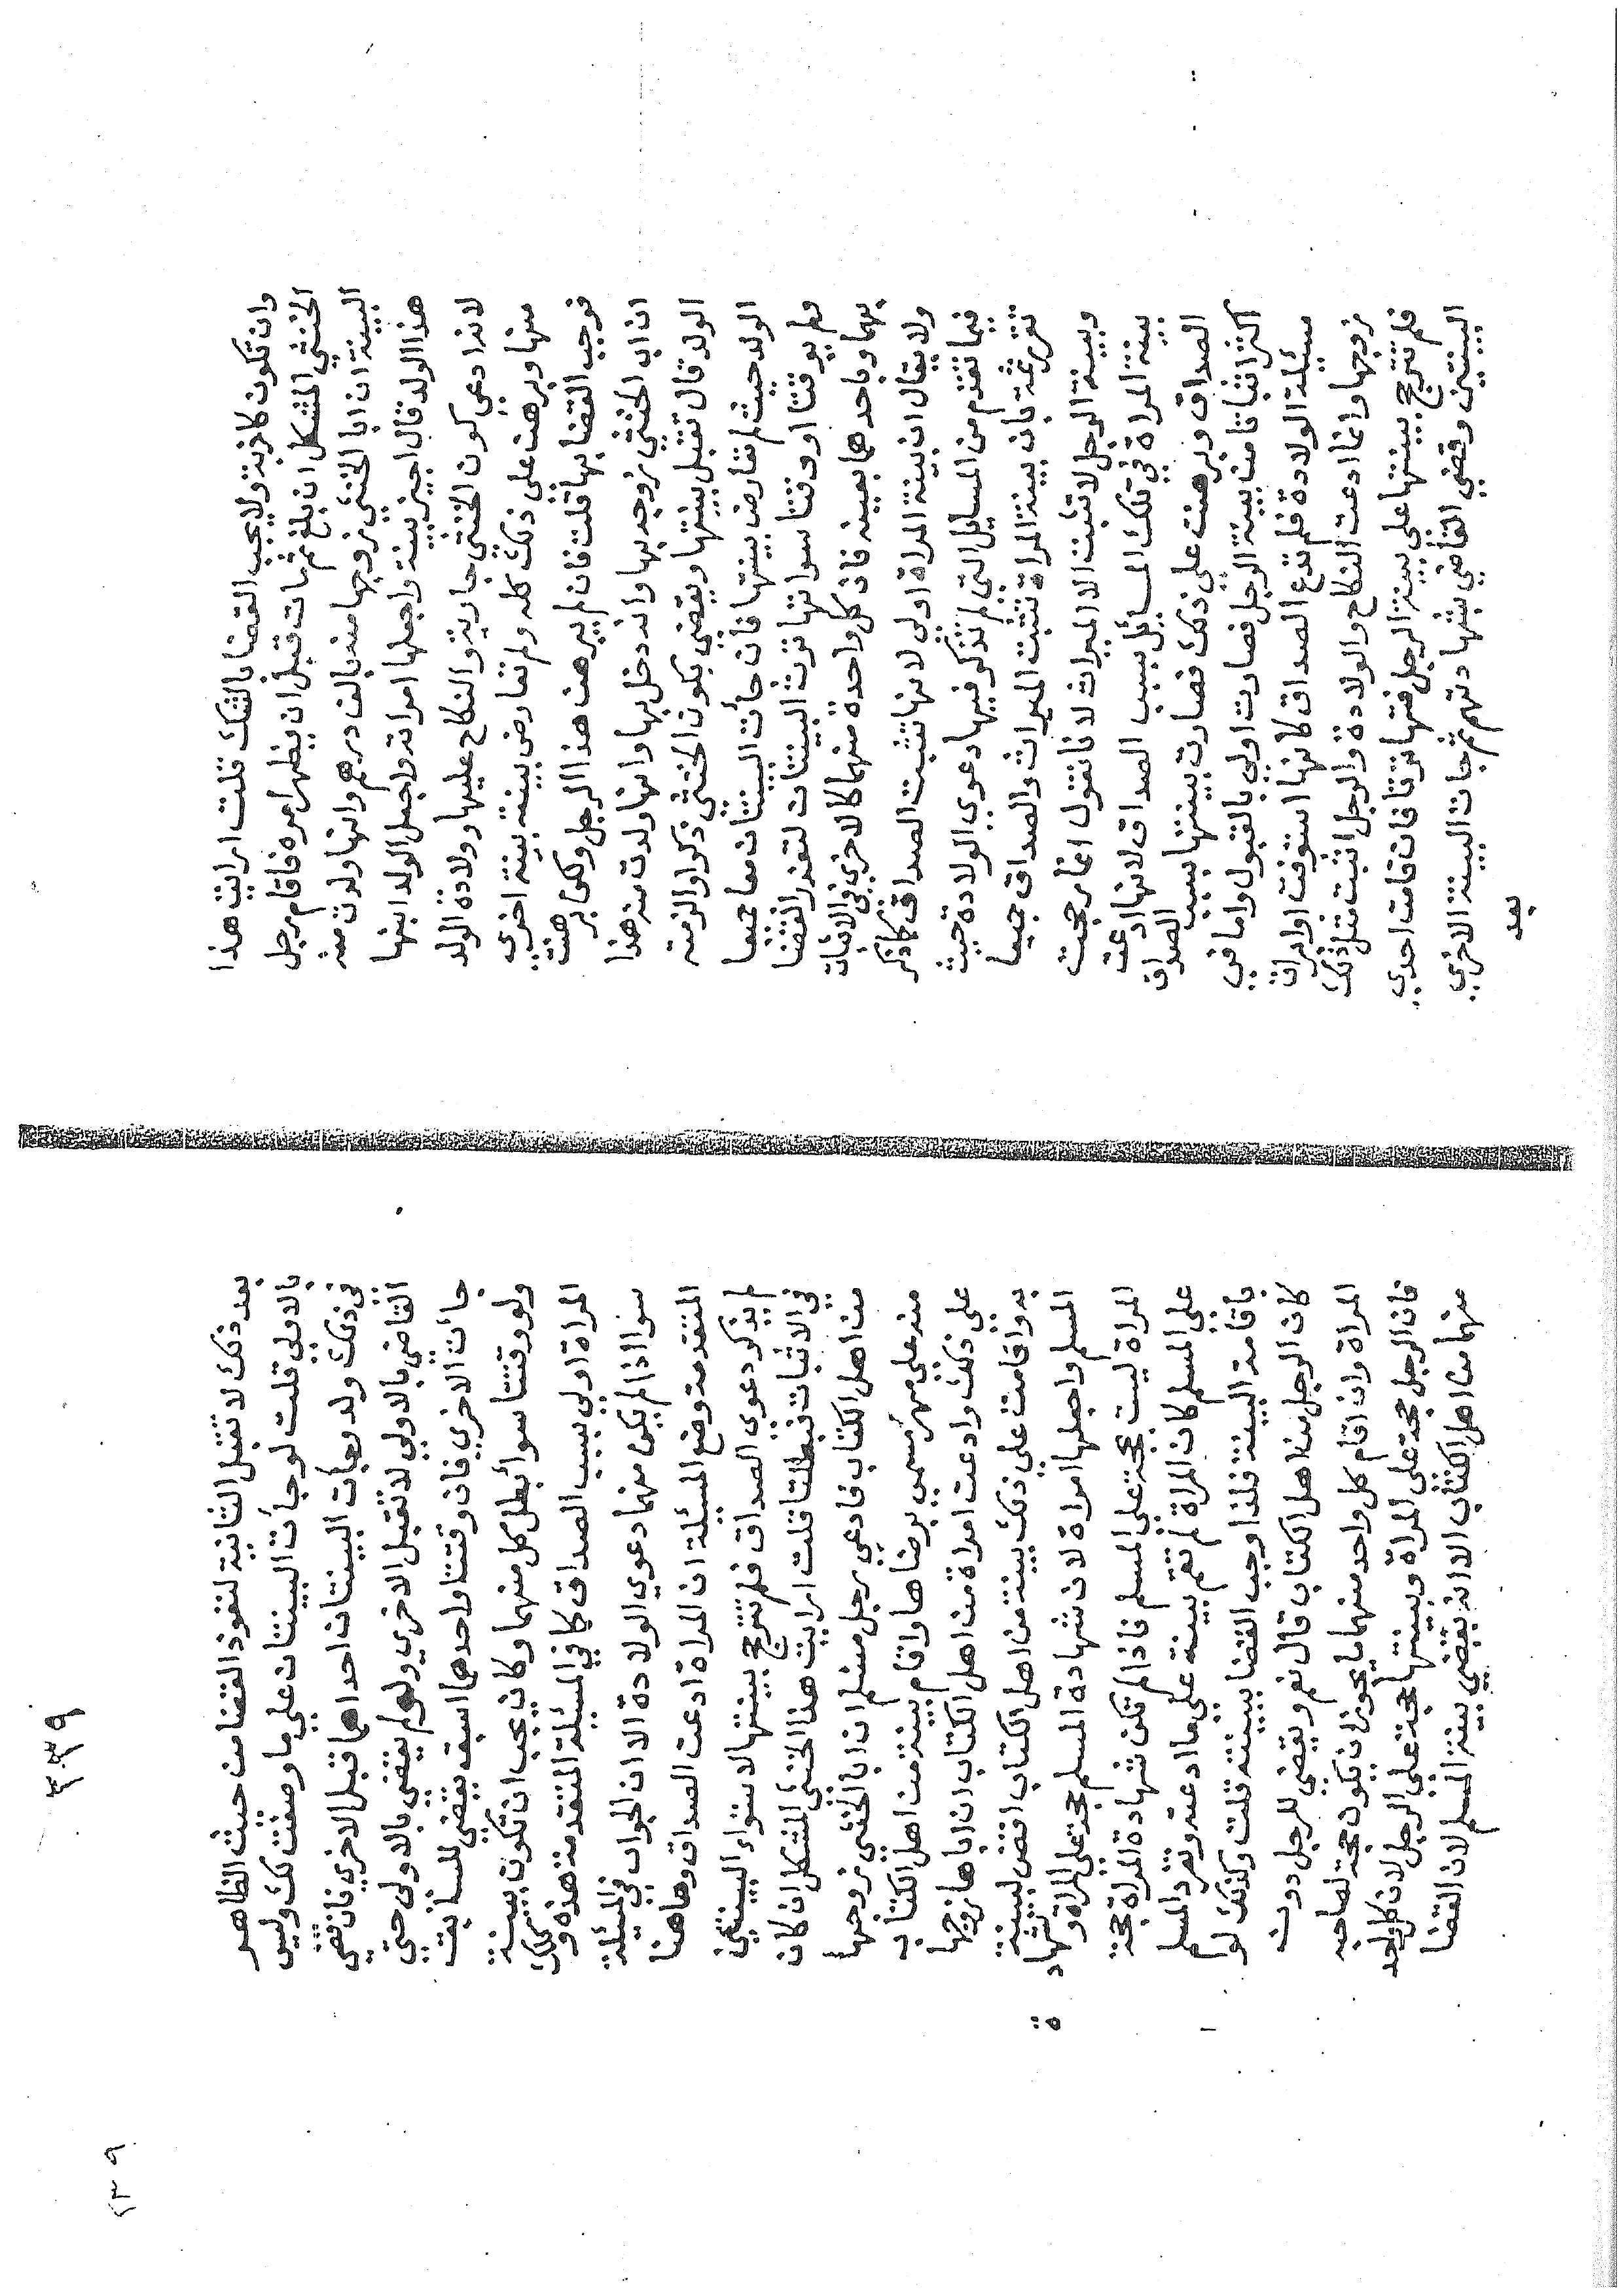 وان تكون كاذبة ولا يجب القضا بالشك قلت ارايت هذا
الخنثي المشكل ان بلغ ثم مات قبل ان يظهر امره فاقام رجل
البينة ان ابا الخنثي زوجها منه بالف درهم وانها ولدت منه
هذا الولد قال اجيز بينته واجعلها امراته واجعل الولد ابنها
لانه ادعي كون الخنثي جارية والنكاح عليها وولادة الولد
منها وبرهنت علي ذلك كله ولم تعارض بينة بينة اخري
فوجب القضا بها قلت فان لم يبرهن هذا الرجل ولكن برهنت
ان اب الخنثي زوجه بها وانه دخل بها وانها ولدت منه هذا
الولد قال تقبل بينتها ويقضي بكون الخنثي ذكرا والزمته
الولد حيث لم تعارض بينتها فان جأت البينتان معا جميعا
ولم يوقتا او وقتا سوا تهاترت البينتان لتعذر القضا
بهما وباحدهما بعينه فاذ كل واحدة منهما كالاخري في الاثبات
ولا يقال ان بينة المراة اولي لانها تثبت الصداق كما ذكر
فيما تقدم من المسايل التي لم تذكر فيها دعوي الولادة حيث
تقرر ثمة بان بينة المراة تثبت الميراث والصداق جميعا
وبينة الرجل لا تثبت الا الميراث لانا نقول انما رجحت
بينة المراة في تلك المسائل بسبب الصداق لانها ادعت
الصداق وبرهنت علي ذلك فصارت بينتها بسبب الصداق
اكثر اثباتا من بينة الرجل فصارت اولي بالقبول واما في
مسئلة الولادة فلم تدع الصداق كانها استوفت او ابرات
زوجها وانما ادعت النكاح والولادة والرجل اثبت مثل ذلك
فلم تترجح بينتها علي بينة الرجل فتهاترتا فان قامت احدي
البينتين وقضي القاضي بشهادتهم ثم جات البينة الاخري
بعد
٣٣٩
٢٣٩
بعد ذلك لا تقبل الثانية لنفوذ القضا من حيث الظاهر
بالاولي قلت لو جأت البينتان علي ما وصفت لك وليس
في ذلك ولد وجأت البينتان احداهما قبل الاخري فان قضي
القاضي بالاولي لا تقبل الاخري ولو لم يقضي بالاولي حتي
جأت الاخري فان وقتتا واحدهما اسبق يقضي للسابقت
ولو وقتتا سوا بطل كل منهما وكان يجب ان تكون بينة
المراة اولي بسبب الصداق كما في المسئلة المتقدمة هذه وكذلك
سوا اذا لم يكن منهما دعوي الولادة الا ان الجواب في المسئلة
المتقدمة وضع المسئلة ان المراة ادعت الصداق وهاهنا
لم يذكر دعوي الصداق فلم تترجح بينتها لاستواء البينتين
في الاثبات فبطلتا قلت ارايت هذا الخنثي المشكل ان كان
من اهل الكتاب فادعي رجل مسلم ان ابا الخنثي زوجها
منه علي مهر مسمي برضاها واقام بينة من اهل الكتاب
علي ذلك وادعت امراة من اهل الكتاب ان اباها زوجها
به واقامت علي ذلك بينة من اهل الكتاب اقض لبينة
المسلم واجعلها امراة لان شهادة المسلم حجة علي المراة وشهادة
المراة ليست بحجة علي المسلم فاذا لم تكن شهادة المراة حجة
علي المسلم كان المراة لم تقم بينة علي ما ادعته وتفرد المسلم
باقامة البينة فلذا وجب القضا ببينته قلت وكذلك لو
كان الرجل من اهل الكتاب قال نعم ويقضي للرجل دون
المراة وان اقام كل واحد منهما ما يجوز ان يكون حجة لصاحبه
فان الرجل حجة علي المراة وبينتها حجة علي الرجل لان كل واحد
منهما من اهل الكتاب الا انه يقضي ببينة المسلم لان القضا